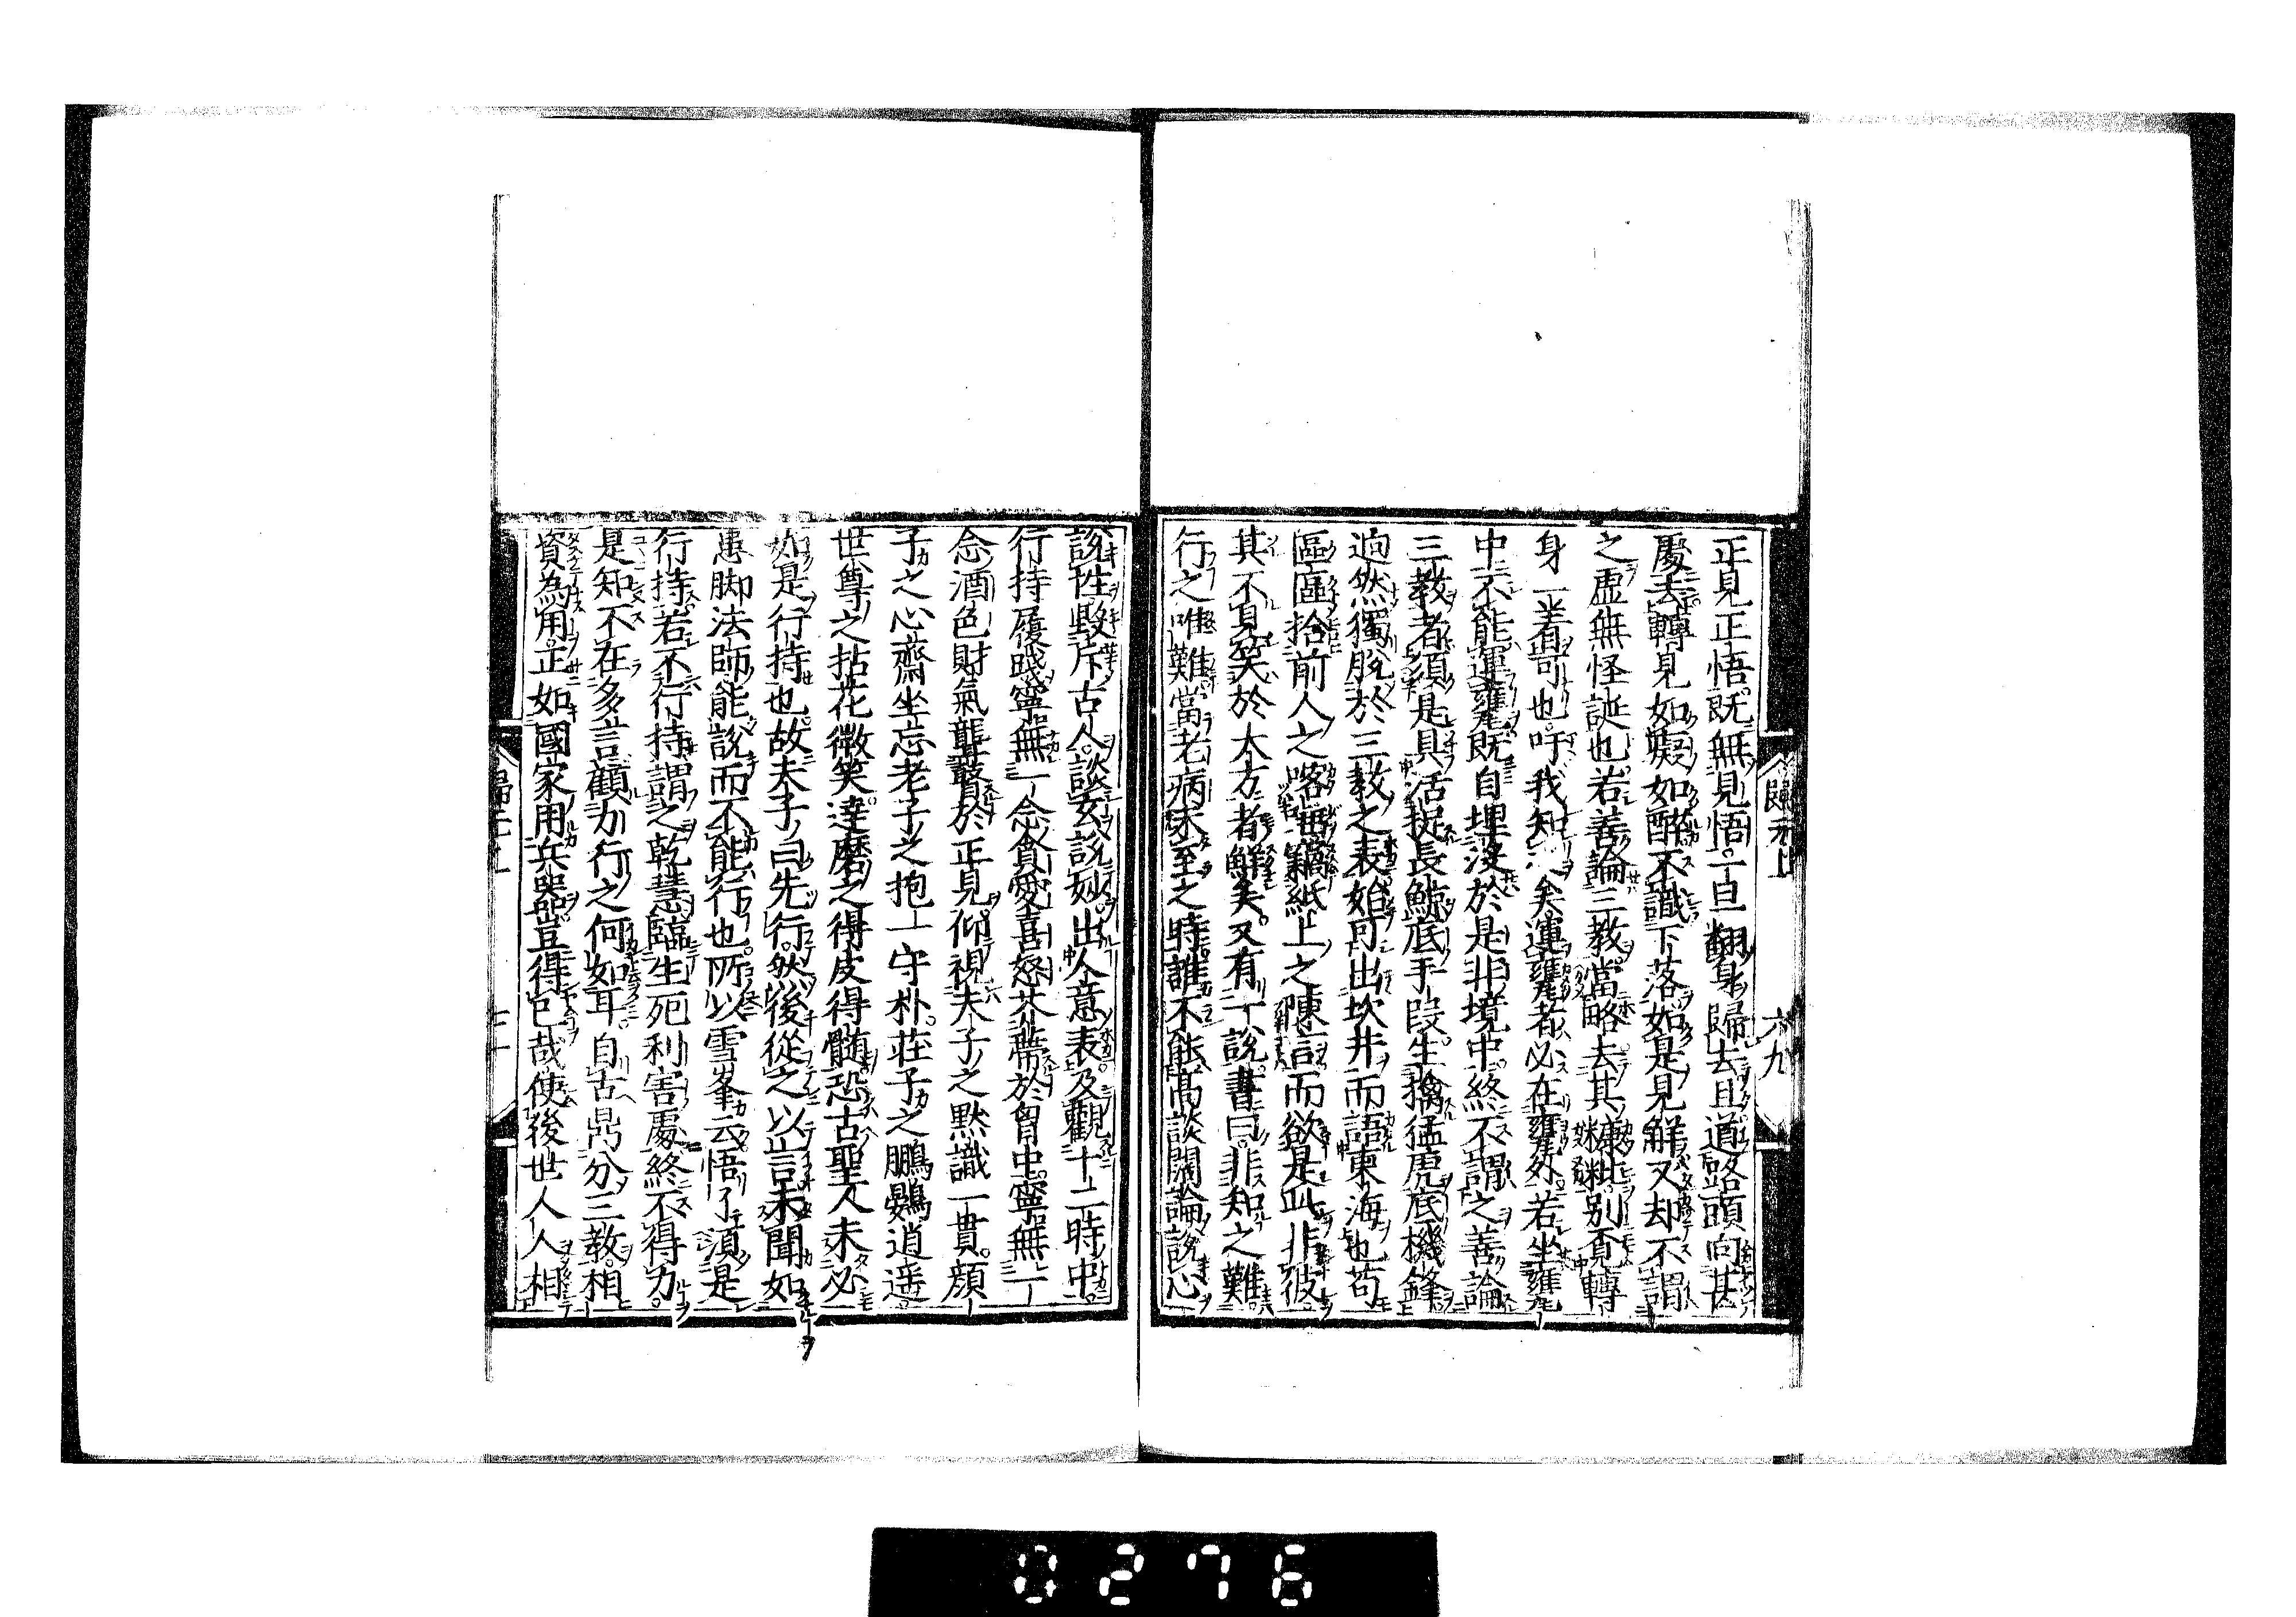 歸元上
六九
正見正悟既無見悟一旦翻身歸去且道路頭向甚
處去轉見如癡如醉不識下落如是見解又却不謂
之虛無怪誕也若善論三教當略去其糠粃別面轉
身一著哿也吁我知矣運甕者必在甕外若坐甕
中不能運甕既自埋沒於是非境中終不謂之善論
三教者須是具活捉長鯨底手段生擒猛虎底機鋒
逈然獨脫於三教之表始可出坎井而語東海也苟
區區拾前人之咯𠿒竊紙上之陳言而欲是此非彼
其不見笑於大方者鮮矣又有一說書曰非知之難
行之唯難當老病未至之時誰不能高談闊論說心
說性毀斥古人談玄說妙出人意表及觀十二時中
行持履踐寧無一念貪愛喜怒芥蔕於胷中寧無一
念酒色財氣聾瞽於正見仰視夫子之默識一貫顏
子之心齋坐忘老子之抱一守朴莊子之鵬鷃逍遥
世尊之拈花微笑達磨之得皮得髓恐古聖人未必
如是行持也故夫子曰先行然後從之以言未聞如
愚脚法師能說而不能行也所以雪峯云悟了須是
行持若不行持謂之乾慧臨生死利害處終不得力
是知不在多言顧力行之何如耳自古鼎分三教相
資為用正如國家用兵器豈得已哉使後世人人相
0276